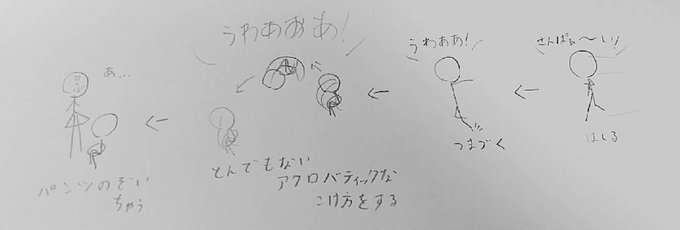 せんぱぁ〜い!
はしる
うわああ!
つまづく
うわあああ!
とんでもない
アクロバティックな
こけ方をする
あ…
パンツのぞい
ちゃう